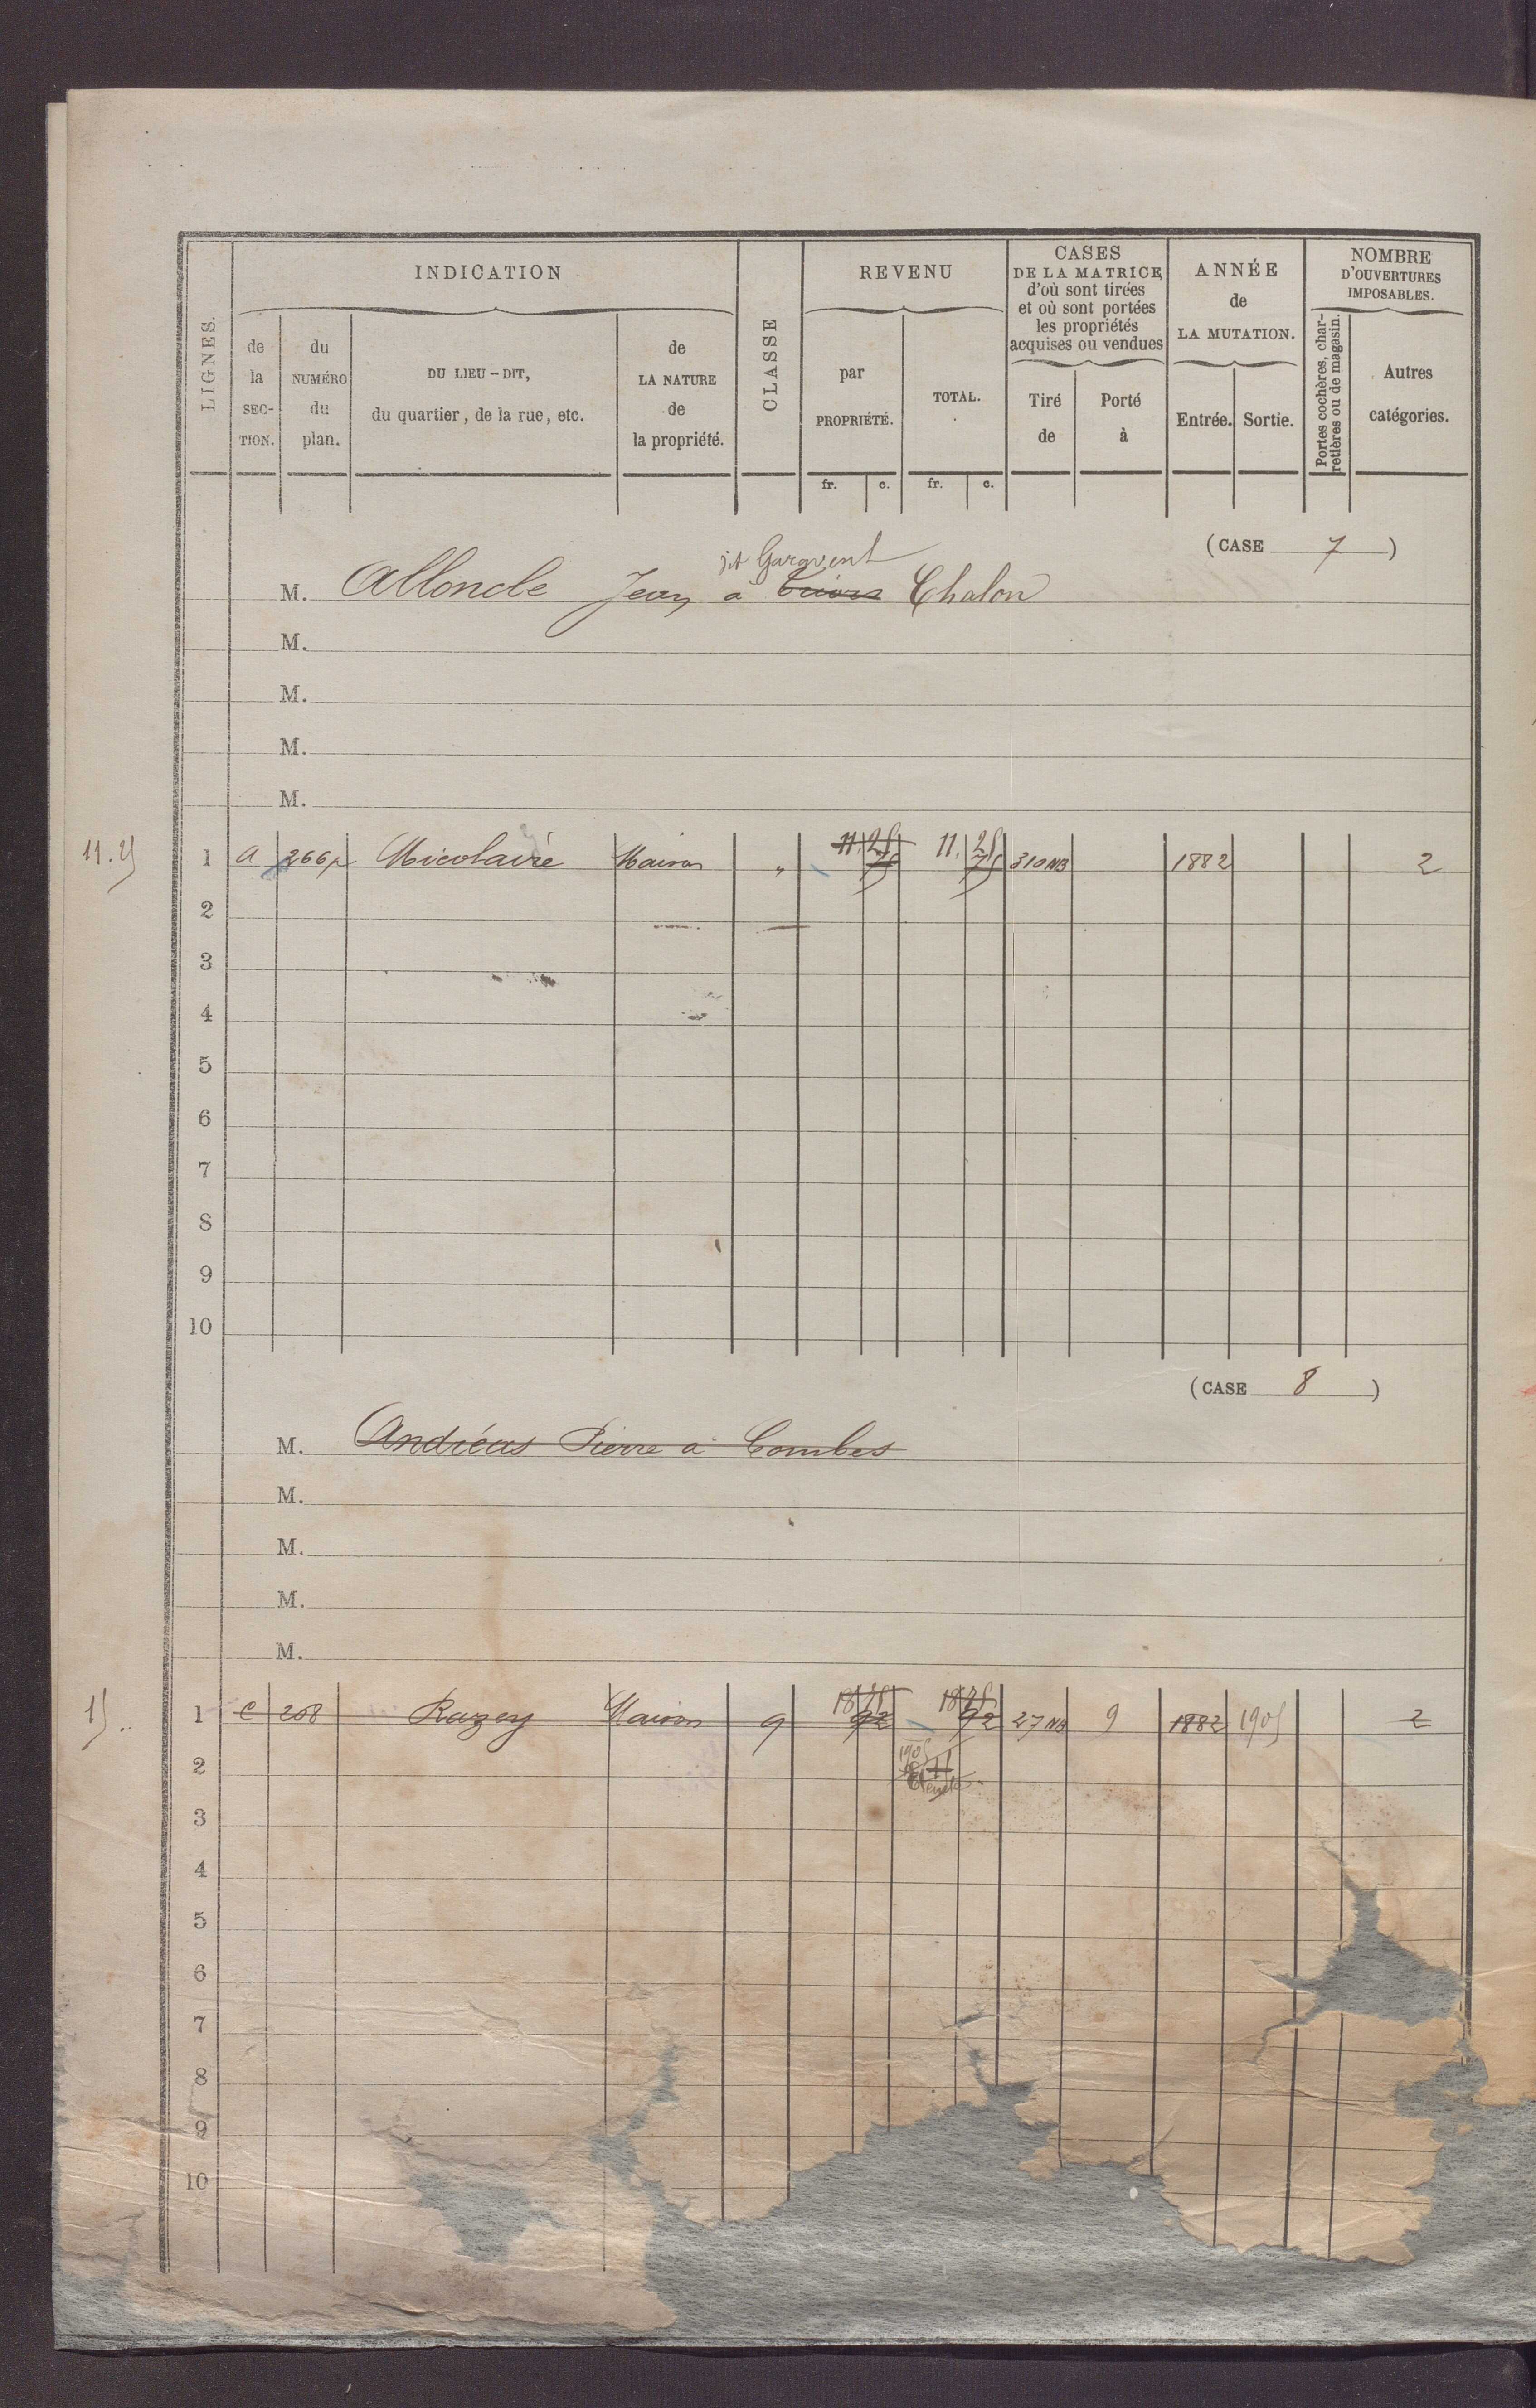 LIGNES.
INDICATION
de la SECTION.
du NUMÉRO du plan.
DU LIEU-DIT, du quartier, de la rue, etc.
de LA NATURE de la propriété.
CLASSE
REVENU
par PROPRIÉTÉ.
TOTAL.
CASES DE LA MATRICE d'où sont tirées et où sont portées les propriétés acquises ou vendues
Tiré de
Porté à
ANNÉE de LA MUTATION.
Entrée.
Sortie.
NOMBRE D'OUVERTURES IMPOSABLES.
Portes cochères, charretières ou de magasin.
Autres catégories.
fr. c. fr. c.
(CASE 7)
dit Garavent
M. Alloncle Jean à Chalon
M.
M.
M.
M.
11.25 1 A 266p Maison " 11 25 11. 25 310 NB 1882 2
75 75
2
3
4
5
6
7
8
9
10
(CASE 8)
M. Andréas Pierre à Combes
M.
M.
M.
M.
15.. 1 C 268 Razey Maison 9 27 NB 9 1882 1905 2
2 1905
3
4
5
6
7
8
9
10